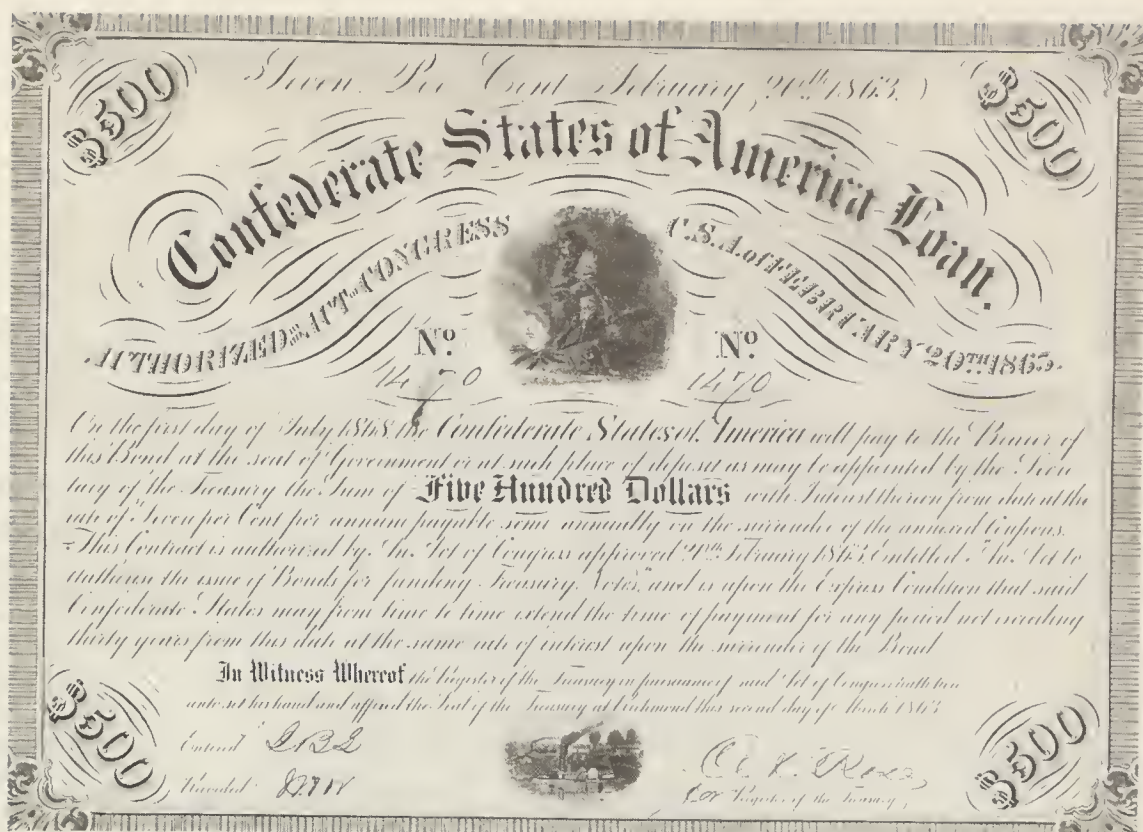 $500
Seven Per Cent February, 20th 1863.
$500
Confederate States of America Loan.
AUTHORIZED BY ACT OF CONGRESS C.S.A. of FEBRUARY 20TH 1863.
No. No.
1470 1470
On the first day of July 1868, the Confederate States of America will pay to the Bearer of
this Bond at the seat of Government or at such place of deposit as may be appointed by the Secre
tary of the Treasury the Sum of Five Hundred Dollars with Interest thereon from date at the
rate of Seven per Cent per annum payable semi annually on the surrender of the annexed Coupons.
This Contract is authorized by "An Act of Congress approved 20th February 1863, Entitled "An Act to
authorise the issue of Bonds for funding Treasury Notes," and is upon the Express Condition that said
Confederate States may from time to time extend the time of payment for any period not exceeding
thirty years from this date at the same rate of interest upon the surrender of the Bond
In Witness Whereof the Register of the Treasury in pursuance of said Act of Congress hath here
unto set his hand and affixed the Seal of the Treasury at Richmond this second day of March 1863
$500
Entered
Recorded
for Register of the Treasury,
$500